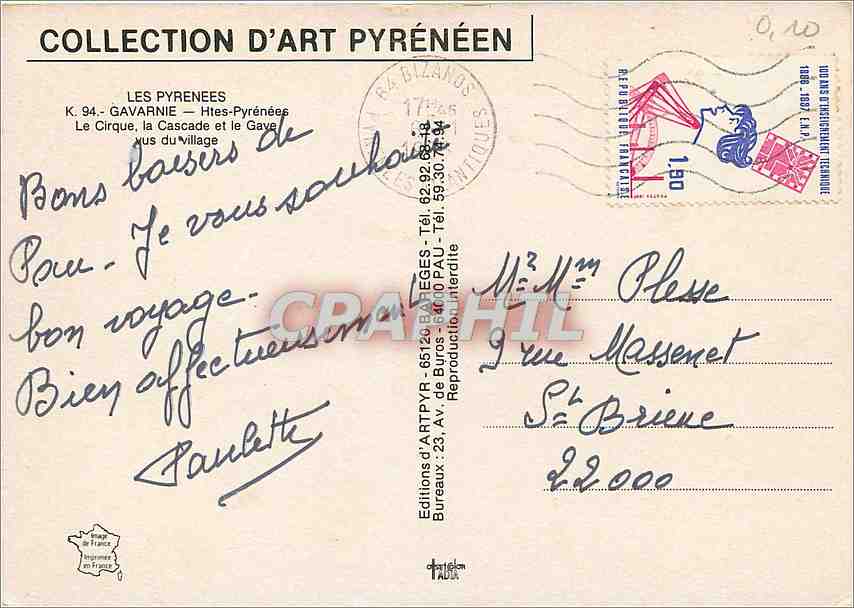 0,10
COLLECTION D'ART PYRÉNÉEN
LES PYRENEES
K. 94.- GAVARNIE — Htes-Pyrénées
Le Cirque, la Cascade et le Gave
vus du village
Bons baisers de
Pau - Je vous souhaite
bon voyage -
Bien affectueusement
Paulette
64 BIZANOS
PYRENEES ATLANTIQUES
100 ANS D'ENSEIGNEMENT TECHNIQUE
1886 - 1987. E.N.P.
1,90
REPUBLIQUE FRANÇAISE
Mr Mme Plesse
9 rue Massenet
St Brieuc
22000
Editions d'ARTPYR - 65120 BAREGES - Tél. 62.92.68.18
Bureaux : 23, Av. de Buros - 64000 PAU - Tél. 59.30.78.94
Reproduction interdite
CPAPHIL
Image
de France
Imprimée
en France